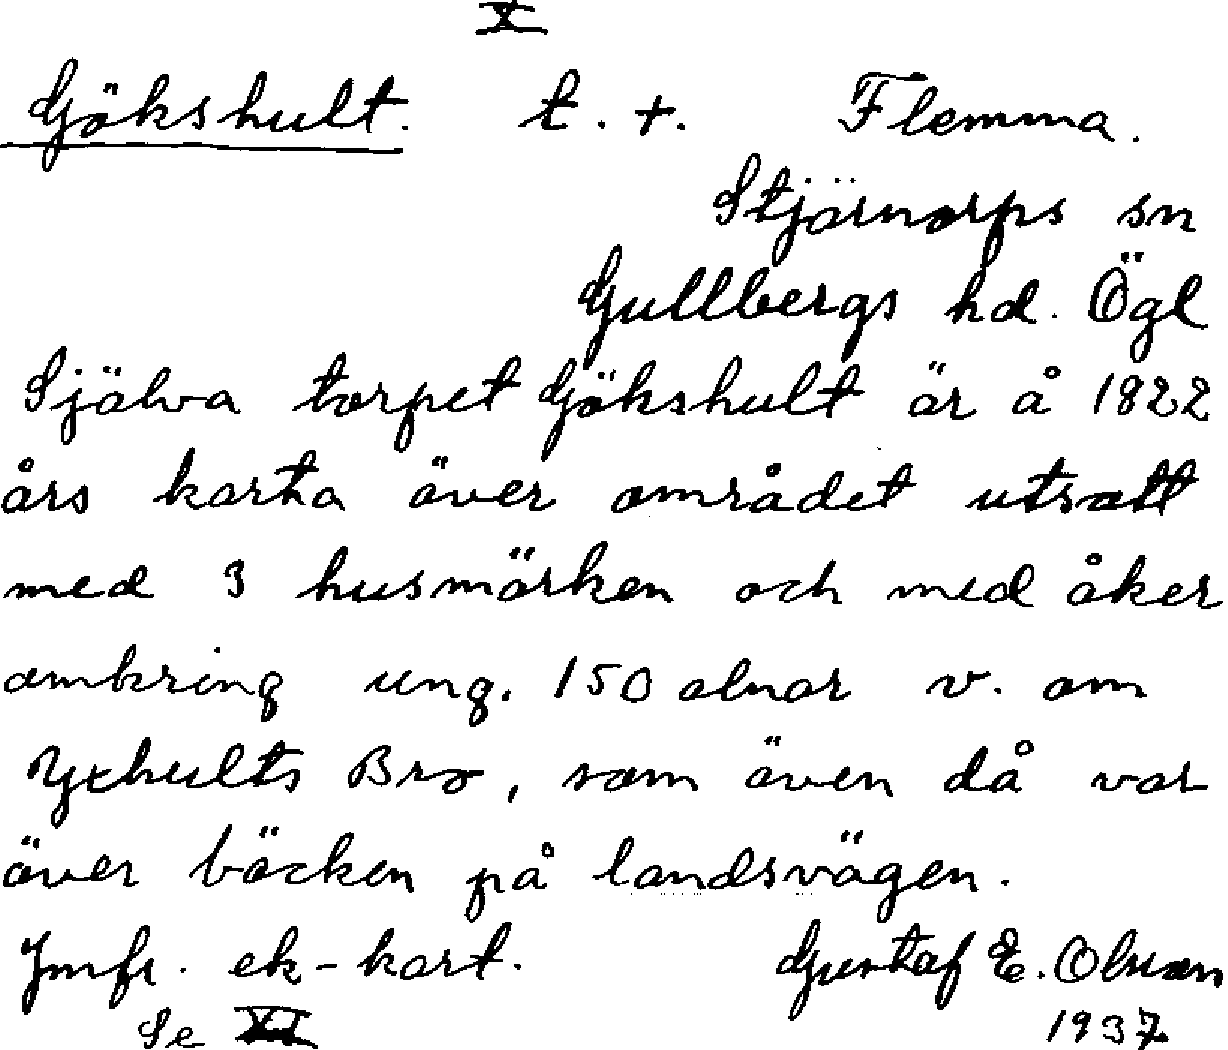 X
Gökshult. t. +. Flemma.
Stjärnorps sn
Gullbergs hd. Ögl
Själva torpet Gökshult är å 1822
års karta över området utsatt
med 3 husmärken och med åker
omkring ung. 150 alnar v. om
Yxhults Bro, som även då var
över bäcken på landsvägen.
Jmfr. ek-kart. Gustaf E. Olsson
Se XI 1937